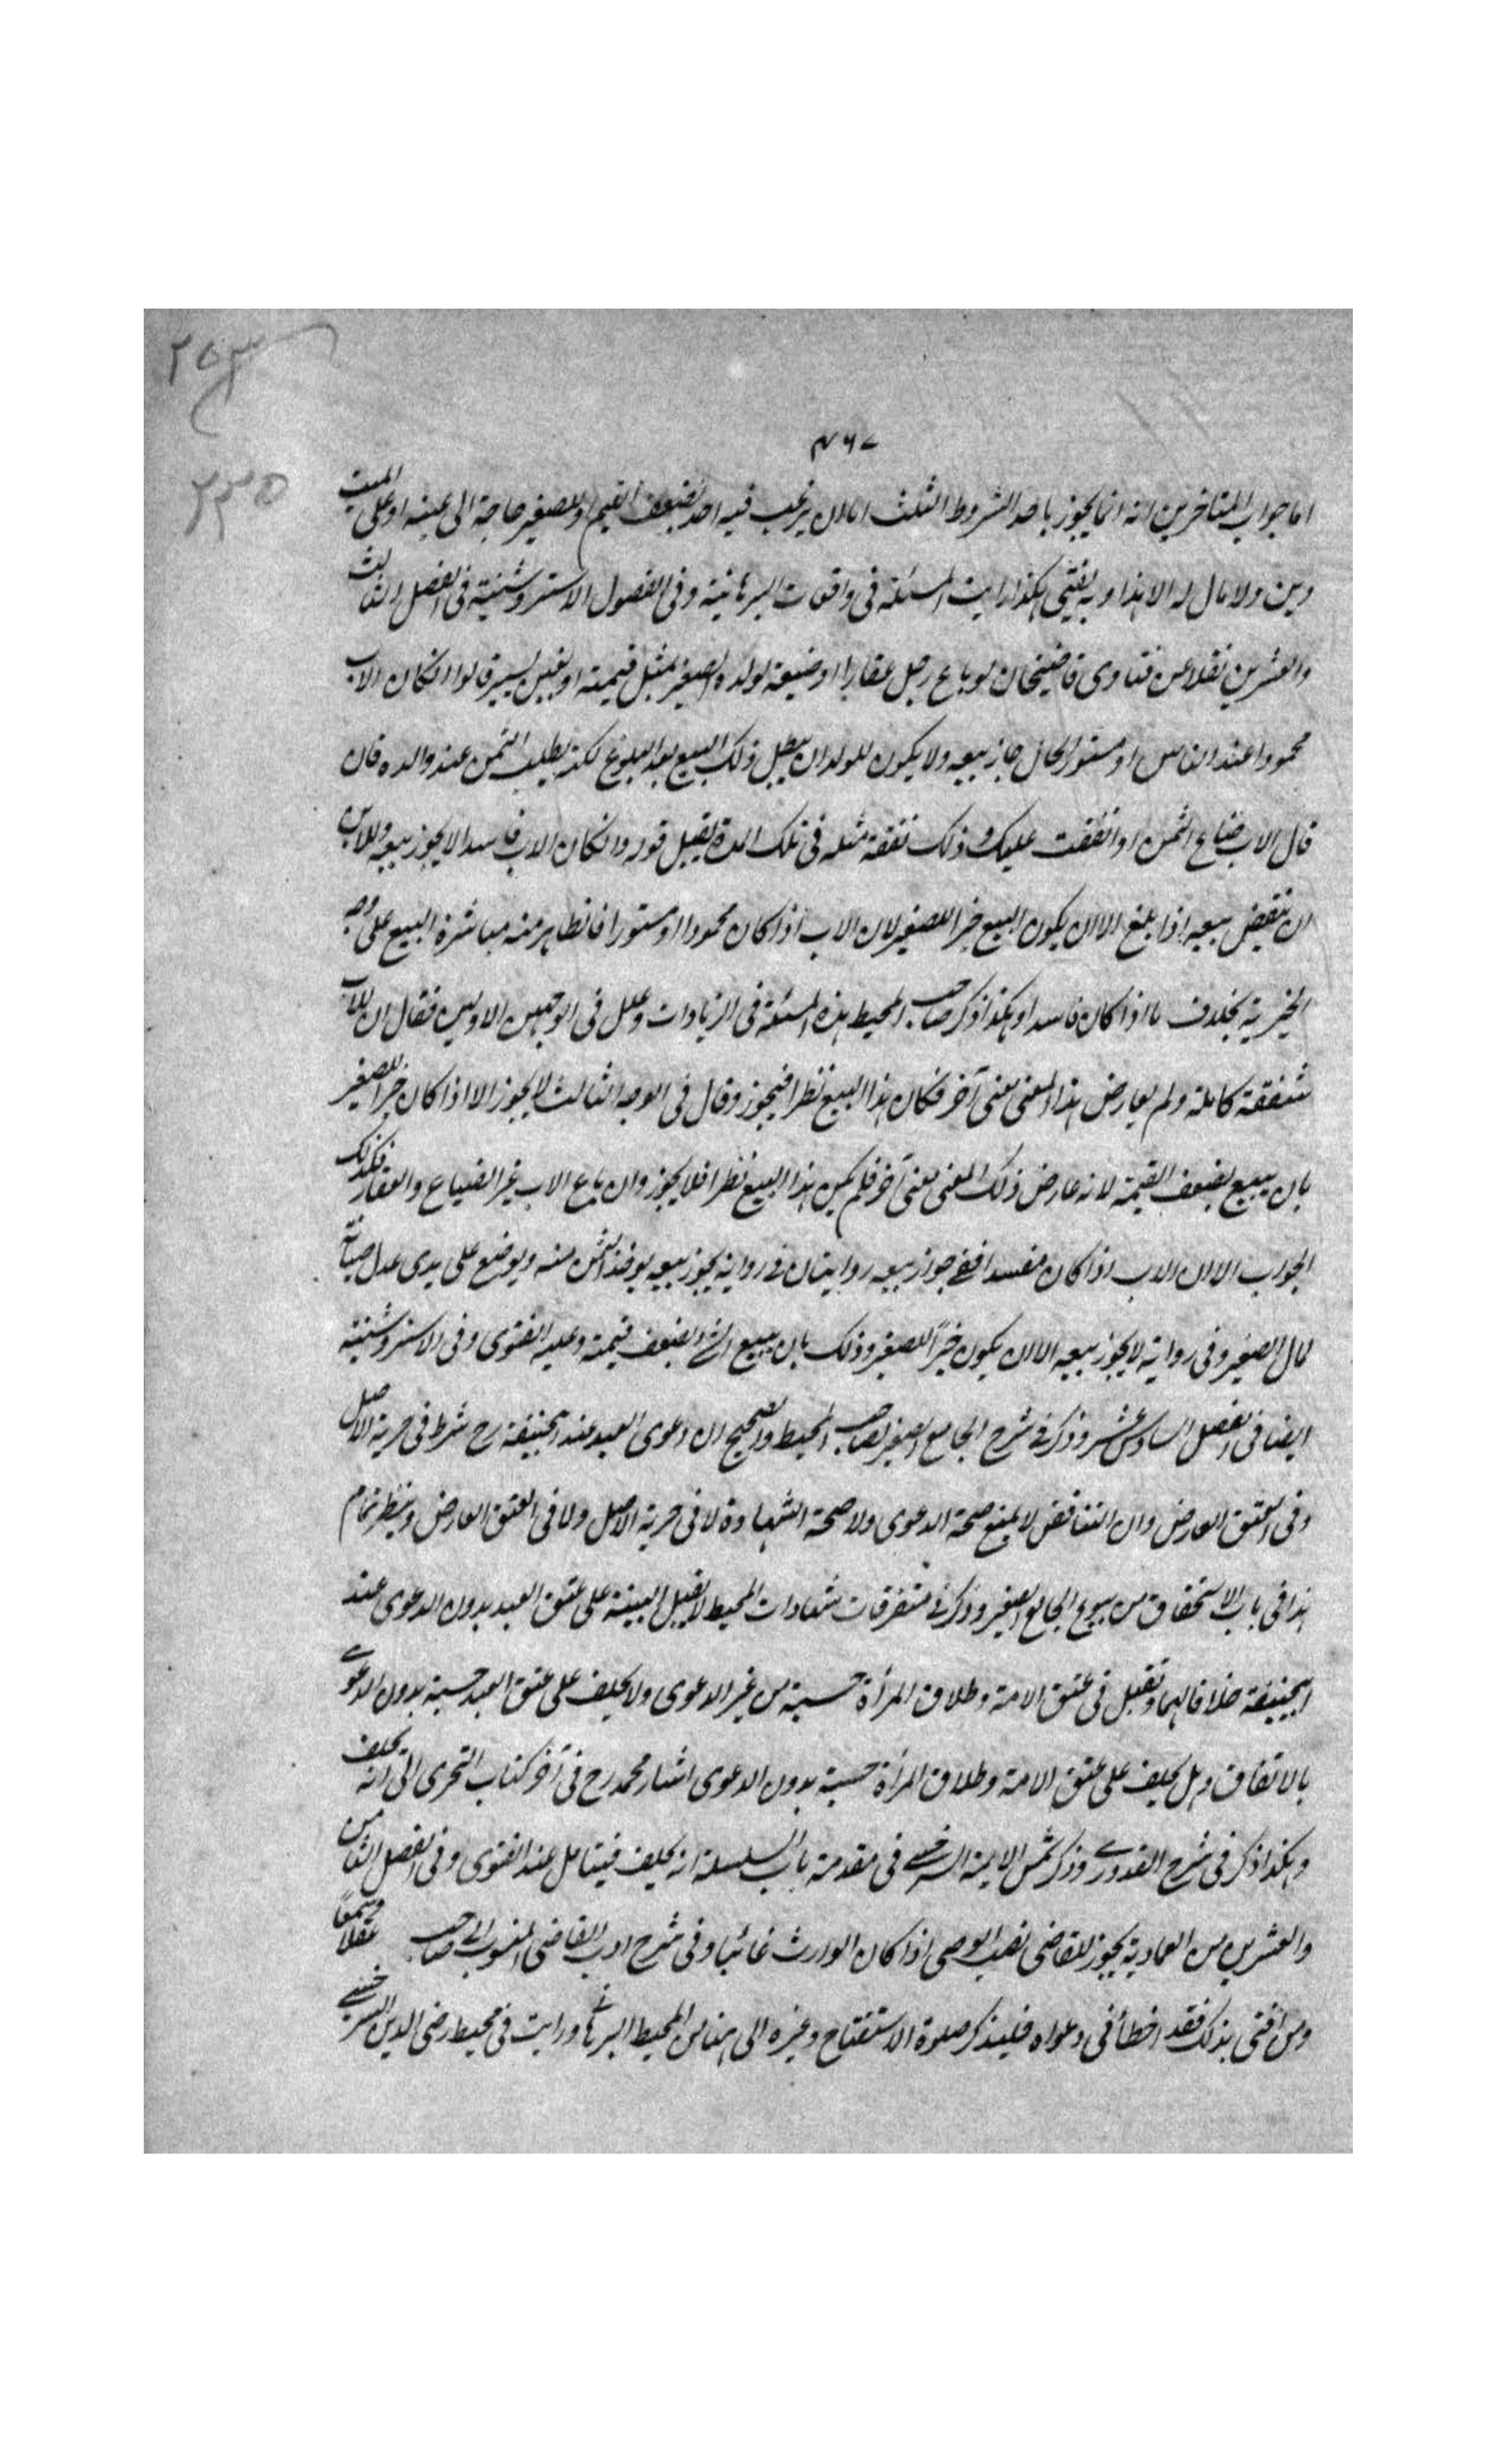 ٢٥٣
٤٦٧
٢٣٥
اما جواب المتاخرين انه انما يجوز باحد الشروط الثلث اما ان يرغب فيه احد بضعف القيم او للصغير حاجة الى عينه او على الميت
دين ولا مال له الا هذا وبه يفتى هكذا رايت المسئلة فى واقعات البرهانية وفى الفصول الاستروشنية فى الفصل الثالث
والعشرين نقلا عن فتاوى قاضيخان لو باع رجل عقارا او ضيعة لولده الصغير بمثل قيمته او بغبن يسير قالوا انكان الاب
محمودا عند الناس او مستور الحال جاز بيعه ولا يكون للولد ان يبطل ذلك البيع بعد البلوغ لكنه يطلب الثمن عند والده فان
قال الاب ضاع الثمن او انفقت عليك وذلك نفقة مثله فى تلك المدة يقبل قوله وانكان الاب فاسدا لا يجوز بيعه وللابن
ان ينقض بيعه اذا بلغ الا ان يكون البيع خيرا للصغير لان الاب اذا كان محمودا او مستورا فالظاهر منه مباشرة البيع على وجه
الخيرية بخلاف ما اذا كان فاسدا وهكذا ذكر صاحب المحيط هذه المسئلة فى الزيادات وعلل فى الوجهين الاولين فقال ان للاب
شفقة كاملة ولم يعارض هذا المعنى معنى آخر فكان هذا البيع نظرا فيجوز وقال فى الوجه الثالث لا يجوز الا اذا كان خيرا للصغير
بان يبيع بضعف القيمة لانه عارض ذلك المعنى معنى آخر فلم يكن هذا البيع نظرا فلا يجوز وان باع الاب غير الضياع والعقار فكذلك
الجواب الا ان الاب اذا كان مفسدا ففى جواز بيعه روايتان فى رواية يجوز بيعه يوخذ الثمن منه ويوضع على يدى عدل صيانة
لمال الصغير وفى رواية لا يجوز بيعه الا ان يكون خيرًا للصغير وذلك بان يبيع الشئ بضعف قيمته وعليه الفتوى وفى الاستروشنية
ايضا فى الفصل السادس عشر وذكر فى شرح الجامع الصغير لصاحب المحيط والصحيح ان دعوى العبد عند ابيحنيفة رح شرط فى حرية الاصل
وفى العتق العارض وان التناقض لا يمنع صحة الدعوى ولا صحة الشهادة لا فى حرية الاصل ولا فى العتق العارض وينظر تمام
هذا فى باب الاستحقاق من بيوع الجامع الصغير وذكر فى متفرقات شهادات المحيط لا يقبل البينة على عتق العبد بدون الدعوى عند
ابيحنيفة خلافا لهما وتقبل فى عتق الامة وطلاق المرأة حسبة من غير الدعوى ولا يحلف على عتق العبد حسبة بدون الدعوى
بالاتفاق وهل يحلف على عتق الامة وطلاق المرأة حسبة بدون الدعوى اشار محمد رح فى آخر كتاب التحرى الى انه يحلف
وهكذا ذكر فى شرح القدورى وذكر شمس الايمة السرخسى فى مقدمة باب السلسلة انه يحلف فيتامل عند الفتوى وفى الفصل الثامن
والعشرين من العمادية يجوز للقاضى نصب الوصى اذا كان الوارث غائبا وفى شرح ادب القاضى المنسوب الى صاحب
ومن افتى بذلك فقد اخطأ فى دعواه فليذكر صلوة الاستفتاح وغيره الى هنا من المحيط البرهانى ورايت فى محيط رضى الدين السرخسى